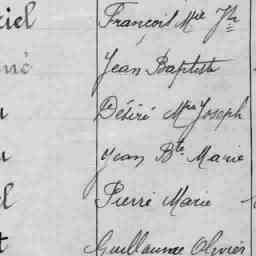 riel François Mie Jh
né Jean Baptiste
Désiré Mie Joseph
Jean Bte Marie
Pierre Marie
Guillaume Olivier